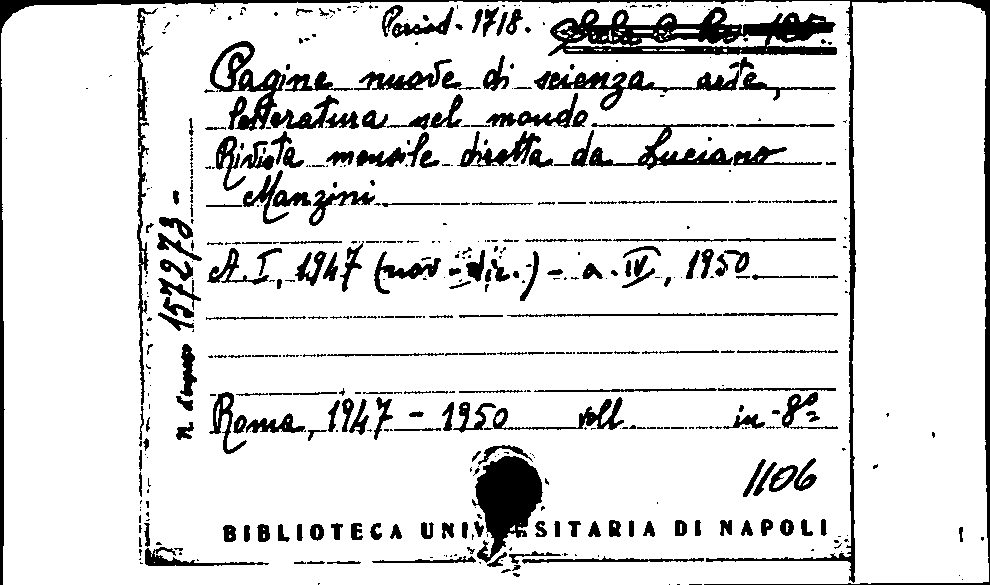 Period. 1718.
Pagine nuove di scienza, arte,
letteratura nel mondo.
Rivista mensile diretta da Luciano
Manzini.
A. I, 1947 (nov-dic.) - a. IV, 1950.
Roma, 1947 - 1950 voll. in-8º
1106
BIBLIOTECA UNIVERSITARIA DI NAPOLI
n. d'ingresso 157273 -